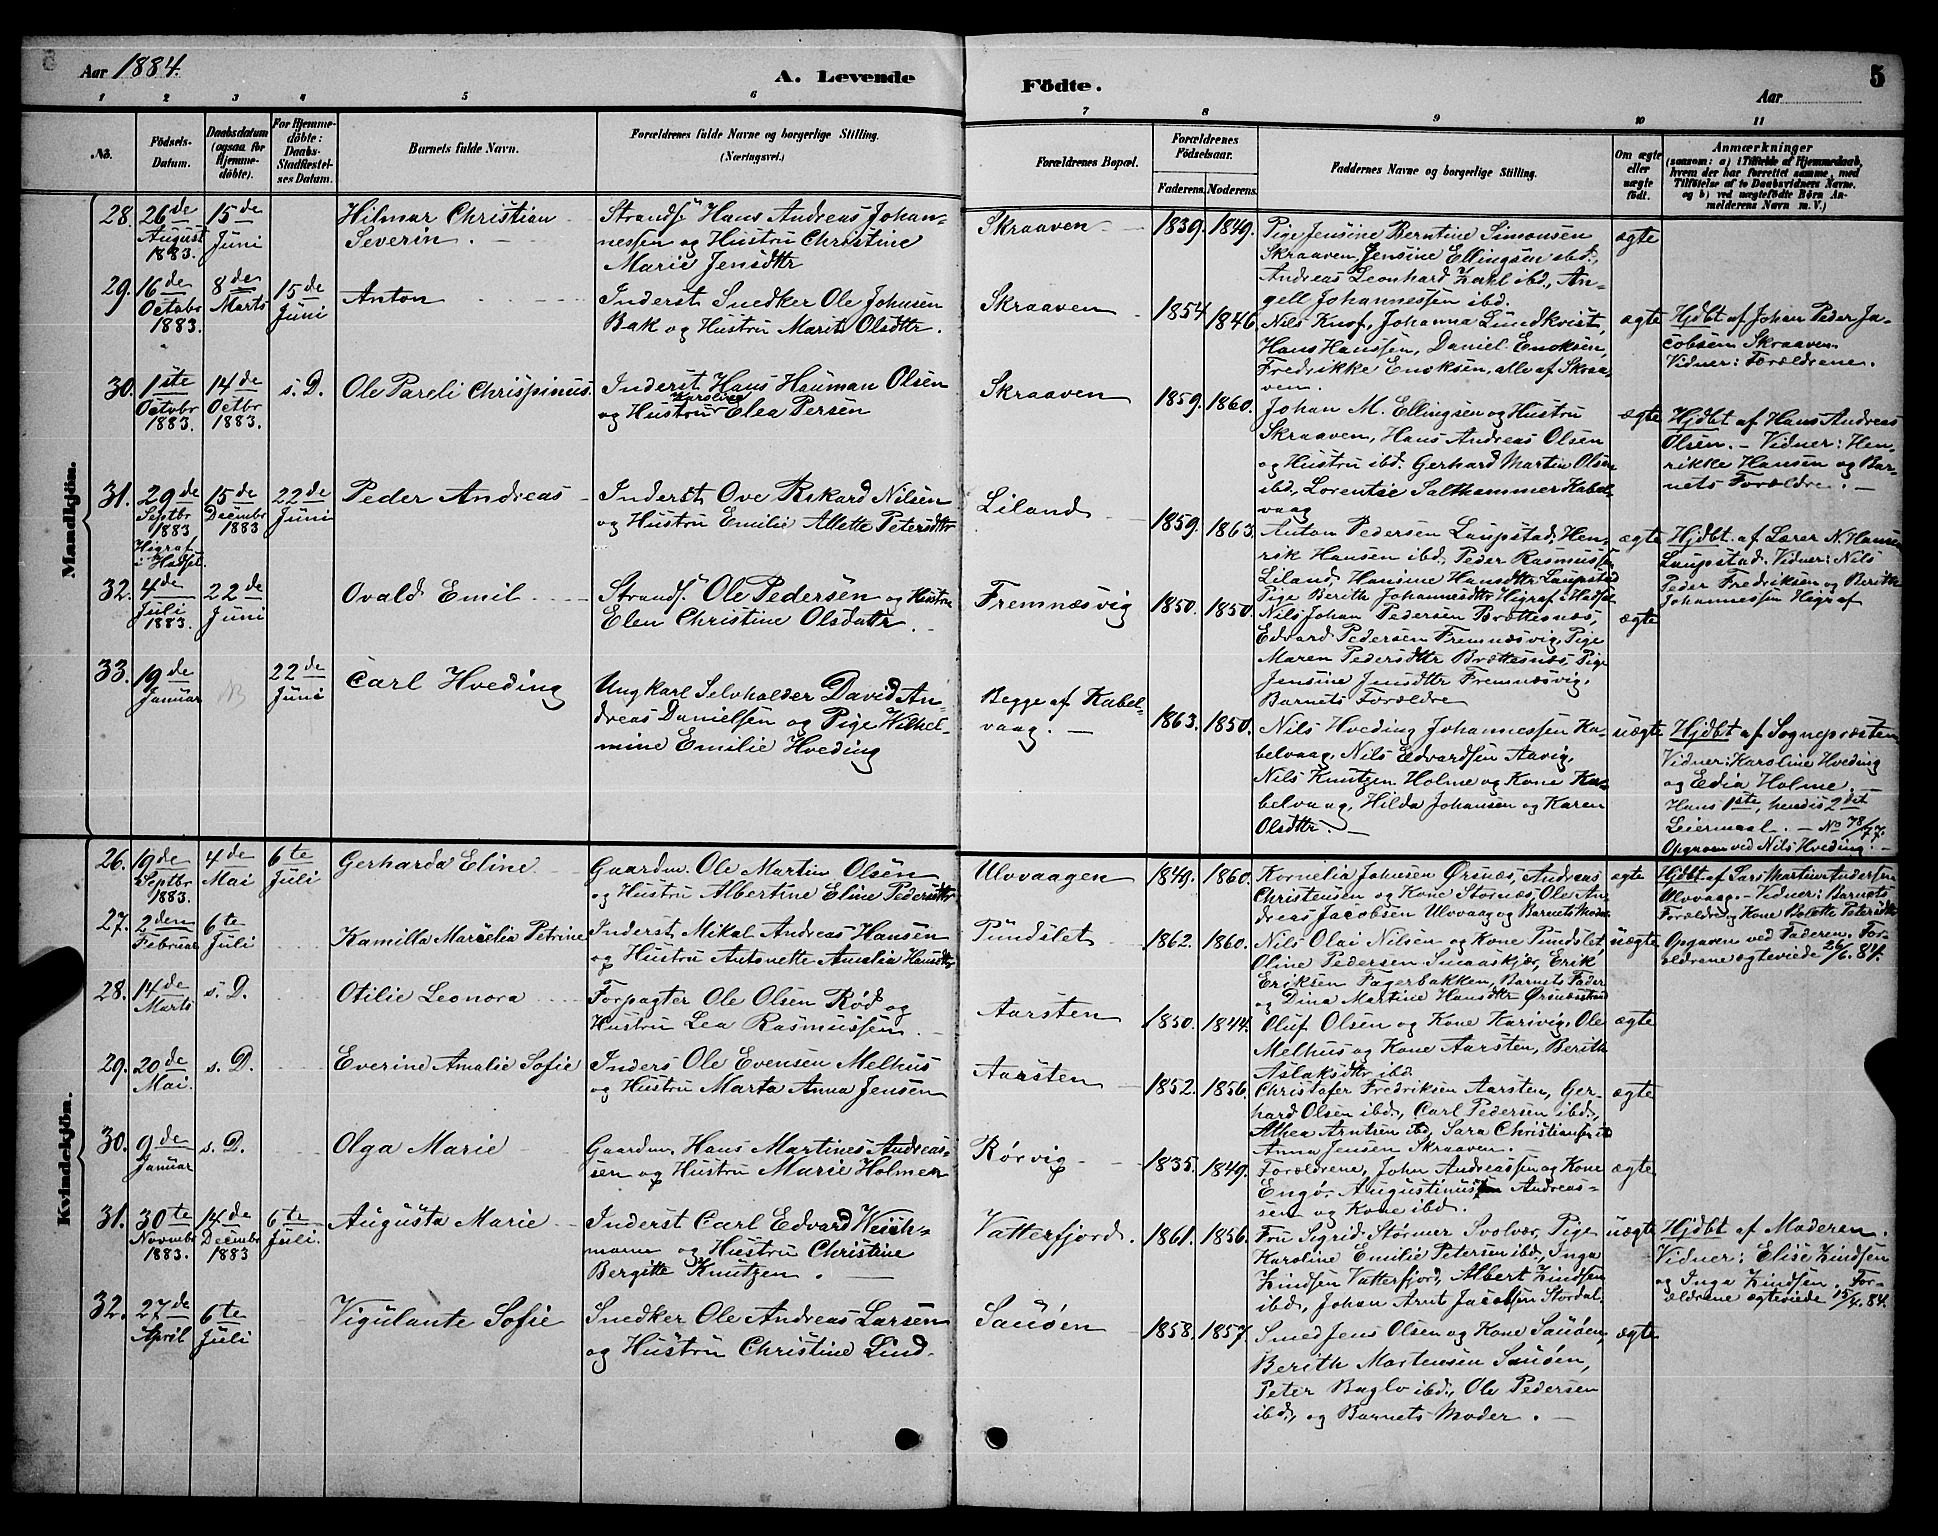 Aar 1884.
A. Levende
Födte.
5
Aar
1 2 3 4 5 6 7 8 9 10 11
No.
Födsels-
Datum.
Daabsdatum
(ogsaa for
Hjemme-
döbte).
For Hjemme-
döbte:
Daabs-
Stadfæstel-
ses Datum.
Barnets fulde Navn.
Forældrenes fulde Navne og borgerlige Stilling.
(Næringsvei.)
Forældrenes Bopæl.
Forældrenes
Födselsaar.
Faderens. Moderens.
Faddernes Navne og borgerlige Stilling.
Om ægte
eller
uægte
födt.
Anmærkninger
(saasom: a) i Tilfælde af Hjemmedaab,
hvem der har forrettet samme, med
Tilföielse af to Daabsvidners Navne.
og b) ved uægtefödte Börn An-
melderens Navn m. V.)
Mandkjön.
28.
26de
August
1883.
15de
Juni
Hilmar Christian
Severin.
Strands. Hans Andreas Johan-
nessen og Hustru Christine
Marie Jensdtr
Skraaven
1839. 1849.
Pige Jensine Berntine Simonsen
Skraaven, Jensine Ellingsen ibd.,
Andreas Leonhard Zahl ibd., An-
gell Johannessen ibd.
ægte
29.
16de
Octobr
1883.
8de
Marts
15de
Juni
Anton
Inderst. Snedker Ole Johnsen
Bak og Hustru Marit Olsdtr.
Skraaven
1854 1846
Nils Knof, Johanna Lundkvist,
Hans Hanssen, Daniel Enoksen,
Fredrikke Enoksen, alle af Skraa-
ven.
ægte
Hjdbt af Johan Peder Ja-
cobsen Skraaven
Vidner: Forældrene.
30.
1ste
Octobr
1883.
14de
Octbr
1883.
s. D.
Ole Pareli Chrispinus.
Inderst. Hans Hauman Olsen
Karoline
og Hustru Elea Persen
Skraaven
1859. 1860.
Johan M. Ellingsen og Hustru
Skraaven, Hans Andreas Olsen
og Hustru ibd. Gerhard Martin Olsen
ibd., Lorentse Salthammer Kabel-
vaag
ægte
Hjdbt af Hans Andreas
Olsen. - Vidner: Hen-
rikke Hansen og Bar-
nets Forældre. -
31.
29de
Septbr
1883
Higraf
i Hadsel.
15de
Decembr
1883
22de
Juni
Peder Andreas
Inderst. Ove Rskard Nilsen
og Hustru Emilie Alette Petersdtr
Liland
1859. 1863.
Anton Pedersen Laupstad, Hen-
rik Hansen ibd., Peder Rasmussen
Liland, Hansine Hansdtr Laupstad
Pige Berith Johannesdtr Higraf i Hadsel
ægte
Hjdbt. af Lærer N. Hansen
Laupstad. Vidner: Nils
Peder Fredriksen og Berith
Johannessen Higraf
32.
4de
Juli
1883.
22de
Juni
Ovald Emil
Strands. Ole Pedersen og Hustru
Elen Christine Olsdattr
Fremnæsvig
1850. 1850.
Nils Johan Pedersen Brættesnæs,
Edvard Pedersen Fremnæsvig, Pige
Maren Pedersdtr Brættesnæs, Pige
Jensine Jensdtr Fremnæsvig,
Barnets Forældre
ægte
33.
19de
Januar
NB
22de
Juni
Carl Hveding
Ungkarl Selvholder David An-
dreas Danielsen og Pige Vilhel-
mine Emilie Hveding
Begge af Kabel-
vaag. -
1863. 1850.
Nils Hveding Johannessen Ka-
belvaag, Nils Edvardsen Aavig,
Nils Knutzen Holme og Kone Ka-
belvaag, Hilda Johansen og Karen
Olsdtr. -
uægte
Hjdbt af Sognepræsten
Vidner: Karoline Hveding
og Edia Holme. -
Hans 1ste, hendes 2det
Leiermaal. - No 78/77.
Opgaven ved Nils Hveding. -
Kvindekjön.
26.
19de
Septbr
1883.
4de
Mai
6te
Juli
Gerharda Eline
Gaardm. Ole Martin Olsen
og Hustru Albertine Eline Pedersdtr
Ulvaagen
1849. 1860.
Kornelia Johnsen Ørsnæs, Andreas
Christensen og Kone Stornæs, Ole An-
dreas Jacobsen Ulvaag og Barnets Moder
ægte
Hjdbt af Lars Martin Andersen
Ulvaag. - Vidner: Barnets
Forældre og Kone Bolette Petersdtr
27.
2den
Februar
6te
Juli
Kamilla Marselia Petrine
Inderst. Mikal Andreas Hansen
og Hustru Antonette Amalia Hansdtr
Pundslet
1862. 1860.
Nils Olai Nilsen og Kone Pundslet,
Oline Pedersen Smaaskjær, Erik
Eriksen Fagerbakken, Barnets Fader
og Dina Martine Hansdtr Ørsnæsstrand
uægte
Opgaven ved Faderen. For-
ældrene ægteviede 26/6.84.
28.
14de
Marts
s. D.
Otilie Leonora
Forpagter Ole Olsen Rød og
Hustru Lea Rasmussen.
Aarsten
1850. 1844.
Oluf Olsen og Kone Karivig, Ole
Melhus og Kone Aarsten, Berith
Aslaksdtr ibd.
ægte
29.
20de
Mai.
s. D.
Everine Amalie Sofie
Inders Ole Evensen Melhus
og Hustru Marta Anna Jensen
Aarsten
1852. 1856.
Christofer Fredriksen Aarsten, Ger-
hard Olsen ibd., Carl Pedersen ibd.,
Althea Arntsen ibd, Sara Christiansen ibd
Anna Jensen Skraaven.
ægte
30.
9de
Januar
s. D.
Olga Marie
Gaardm. Hans Martines Andreas-
sen og Hustru Marie Holmen
Rørvig
1835. 1849.
Forældrene, John Andreassen og Kone
Engø, Augustinus Andreas-
sen og Kone ibd.
ægte
31.
30te
Novembr
1883.
14de
Decembr
1883
6te
Juli.
Augusta Marie
Inderst Carl Edvard Weich-
mann og Hustru Christine
Bergitte Knutzen. -
Vatterfjord.
1861. 1856.
Fru Sigrid Størmer Svolvær, Pige
Karoline Emilie Petersen ibd., Inga
Zindsen Vatterfjord, Albert Zindsen
ibd., Johan Arnt Jacobsen Stordal.
uægte
Hjdbt af Moderen.
Vidner: Elise Zindsen
og Inga Zindsen. For-
ældrene ægteviede 15/4.84.
32.
27de
April
6te
Juli
Vigulante Sofie
Snedker Ole Andreas Larsen
og Hustru Christine Lind.
Sauøen
1858. 1857.
Smed Jens Olsen og Kone Sauøen,
Berith Mortensen Sauøen,
Peter Baglo ibd., Ole Pedersen
ibd., og Barnets Moder. -
ægte